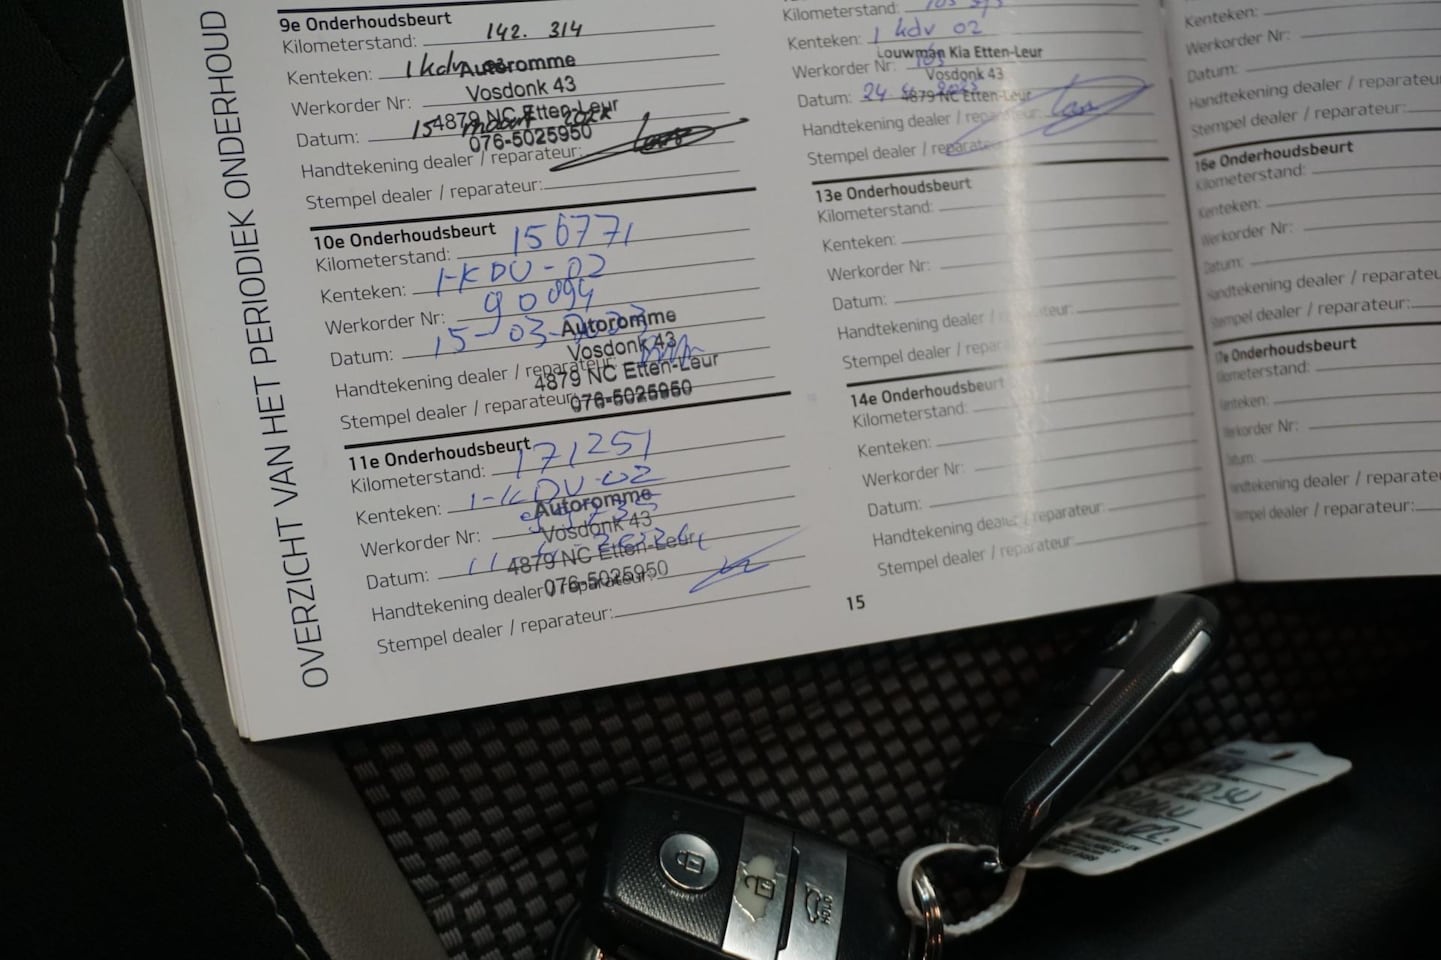 OVERZICHT VAN HET PERIODIEK ONDERHOUD
9e Onderhoudsbeurt
Kilometerstand: 142. 314
Kenteken: 1 kdv
Autoromme
Werkorder Nr:
Vosdonk 43
Datum: 15 maart
4879 NC Etten-Leur
076-5025950
Handtekening dealer / reparateur:
Stempel dealer / reparateur:
10e Onderhoudsbeurt
Kilometerstand: 156771
Kenteken: 1-KDV-02
Werkorder Nr: 90094
Datum: 15-03-2023
Autoromme
Vosdonk 43
Handtekening dealer / reparateur:
4879 NC Etten-Leur
Stempel dealer / reparateur:
076-5025950
11e Onderhoudsbeurt
Kilometerstand: 171251
Kenteken: 1-KDV-02
Autoromme
Werkorder Nr:
Vosdonk 43
Datum:
4879 NC Etten-Leur
Handtekening dealer / reparateur:
076-5025950
Stempel dealer / reparateur:
Kilometerstand:
Kenteken: 1 kdv 02
Louwman Kia Etten-Leur
Werkorder Nr:
Vosdonk 43
Datum: 24
4879 NC Etten-Leur
Handtekening dealer / reparateur:
Stempel dealer / reparateur:
13e Onderhoudsbeurt
Kilometerstand:
Kenteken:
Werkorder Nr:
Datum:
Handtekening dealer / reparateur:
Stempel dealer / reparateur:
14e Onderhoudsbeurt
Kilometerstand:
Kenteken:
Werkorder Nr:
Datum:
Handtekening dealer / reparateur:
Stempel dealer / reparateur:
15
Kenteken:
Werkorder Nr:
Datum:
Handtekening dealer / reparateur:
Stempel dealer / reparateur:
16e Onderhoudsbeurt
Kilometerstand:
Kenteken:
Werkorder Nr:
Datum:
Handtekening dealer / reparateur
Stempel dealer / reparateur:
17e Onderhoudsbeurt
Kilometerstand:
Kenteken:
Werkorder Nr:
Datum:
Handtekening dealer / reparateur
Stempel dealer / reparateur:
HOLD